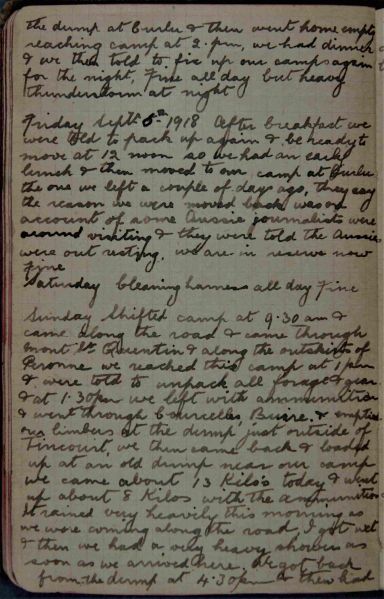 the dump at Curlu & then went home empty
reaching camp at 2. pm, we had dinner
& we then told to fix up our camps again
for the night, Fine all day but heavy
thunderstorm at night
Friday Sept. 5th 1918 After breakfast we
were told to pack up again & be ready to
move at 12 noon so we had an early
lunch & then moved to our camp at Curlu
the one we left a couple of days ago, they say
the reason we were moved back was on
account of some Aussie journalists were
around visiting & they were told the Aussies
were out resting, we are in reserve now
Fine
Saturday Cleaning harness all day Fine
Sunday Shifted camp at 9.30 am &
came along the road & came through
Mont St Quentin & along the outskirts of
Peronne we reached this camp at 1 pm
& were told to unpack all forage & gear
& at 1.30pm we left with ammunition
& went through Courcelles, Buire, & emptied
our limbers at the dump just outside of
Tincourt, we then came back & loaded
up at an old dump near our camp
we came about 13 Kilo's today & went
up about 8 Kilos with the ammunition
It rained very heavily this morning as
we were coming along the road, I got wet
& then we had a very heavy shower as
soon as we arrived here. We got back
from the dump at 4.30pm & then had